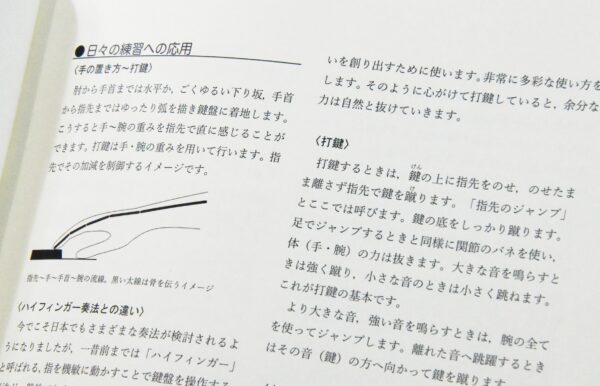 ●日々の練習への応用
〈手の置き方〜打鍵〉
肘から手首までは水平か、ごくゆるい下り坂，手首
から指先まではゆったり弧を描き鍵盤に着地します。
こうすると手〜腕の重みを指先で直に感じることが
できます。打鍵は手・腕の重みを用いて行います。指
先でその加減を制御するイメージです。
指先〜手〜手首〜腕の流線。黒い太線は骨を伝うイメージ
〈ハイフィンガー奏法との違い〉
今でこそ日本でもさまざまな奏法が検討されるよ
うになりましたが，一昔前までは「ハイフィンガー」
と呼ばれる，指を機敏に動かすことで鍵盤を操作する
いを創り出すために使います。非常に多彩な使い方を
します。そのように心がけて打鍵していると，余分な
力は自然と抜けていきます。
〈打鍵〉
打鍵するときは，鍵の上に指先をのせ，のせたま
けん
ま離さず指先で鍵を蹴ります。「指先のジャンプ」
け
とここでは呼びます。鍵の底をしっかり蹴ります。
足でジャンプするときと同様に関節のバネを使い，
体（手・腕）の力は抜きます。大きな音を鳴らすと
きは強く蹴り，小さな音のときは小さく跳ねます。
これが打鍵の基本です。
より大きな音，強い音を鳴らすときは，腕の全て
を使ってジャンプします。離れた音へ跳躍するとき
はその音（鍵）の方へ向かって鍵を蹴ります。